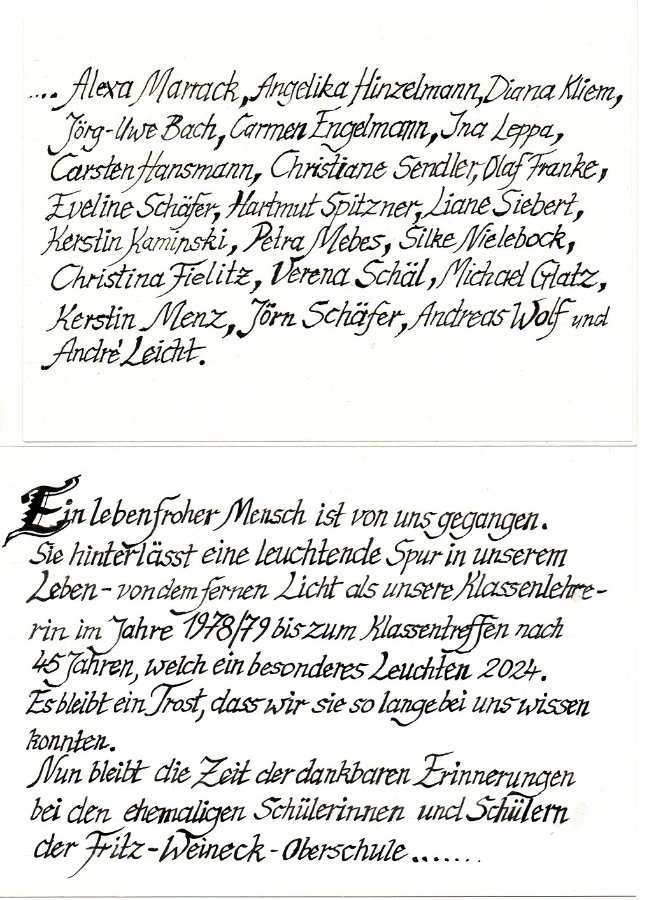 .... Alexa Marrack, Angelika Hinzelmann, Diana Kliem,
Jörg-Uwe Bach, Carmen Engelmann, Ina Leppa,
Carsten Hansmann, Christiane Sendler, Olaf Franke,
Eveline Schäfer, Hartmut Spitzner, Liane Siebert,
Kerstin Kaminski, Petra Mebes, Silke Nielebock,
Christina Fielitz, Verena Schäl, Michael Glatz,
Kerstin Menz, Jörn Schäfer, Andreas Wolf und
André Leicht.
Ein lebenfroher Mensch ist von uns gegangen.
Sie hinterlässt eine leuchtende Spur in unserem
Leben - von dem fernen Licht als unsere Klassenlehre-
rin im Jahre 1978/79 bis zum Klassentreffen nach
45 Jahren, welch ein besonderes Leuchten 2024.
Es bleibt ein Trost, dass wir sie so lange bei uns wissen
konnten.
Nun bleibt die Zeit der dankbaren Erinnerungen
bei den ehemaligen Schülerinnen und Schülern
der Fritz-Weineck-Oberschule .......